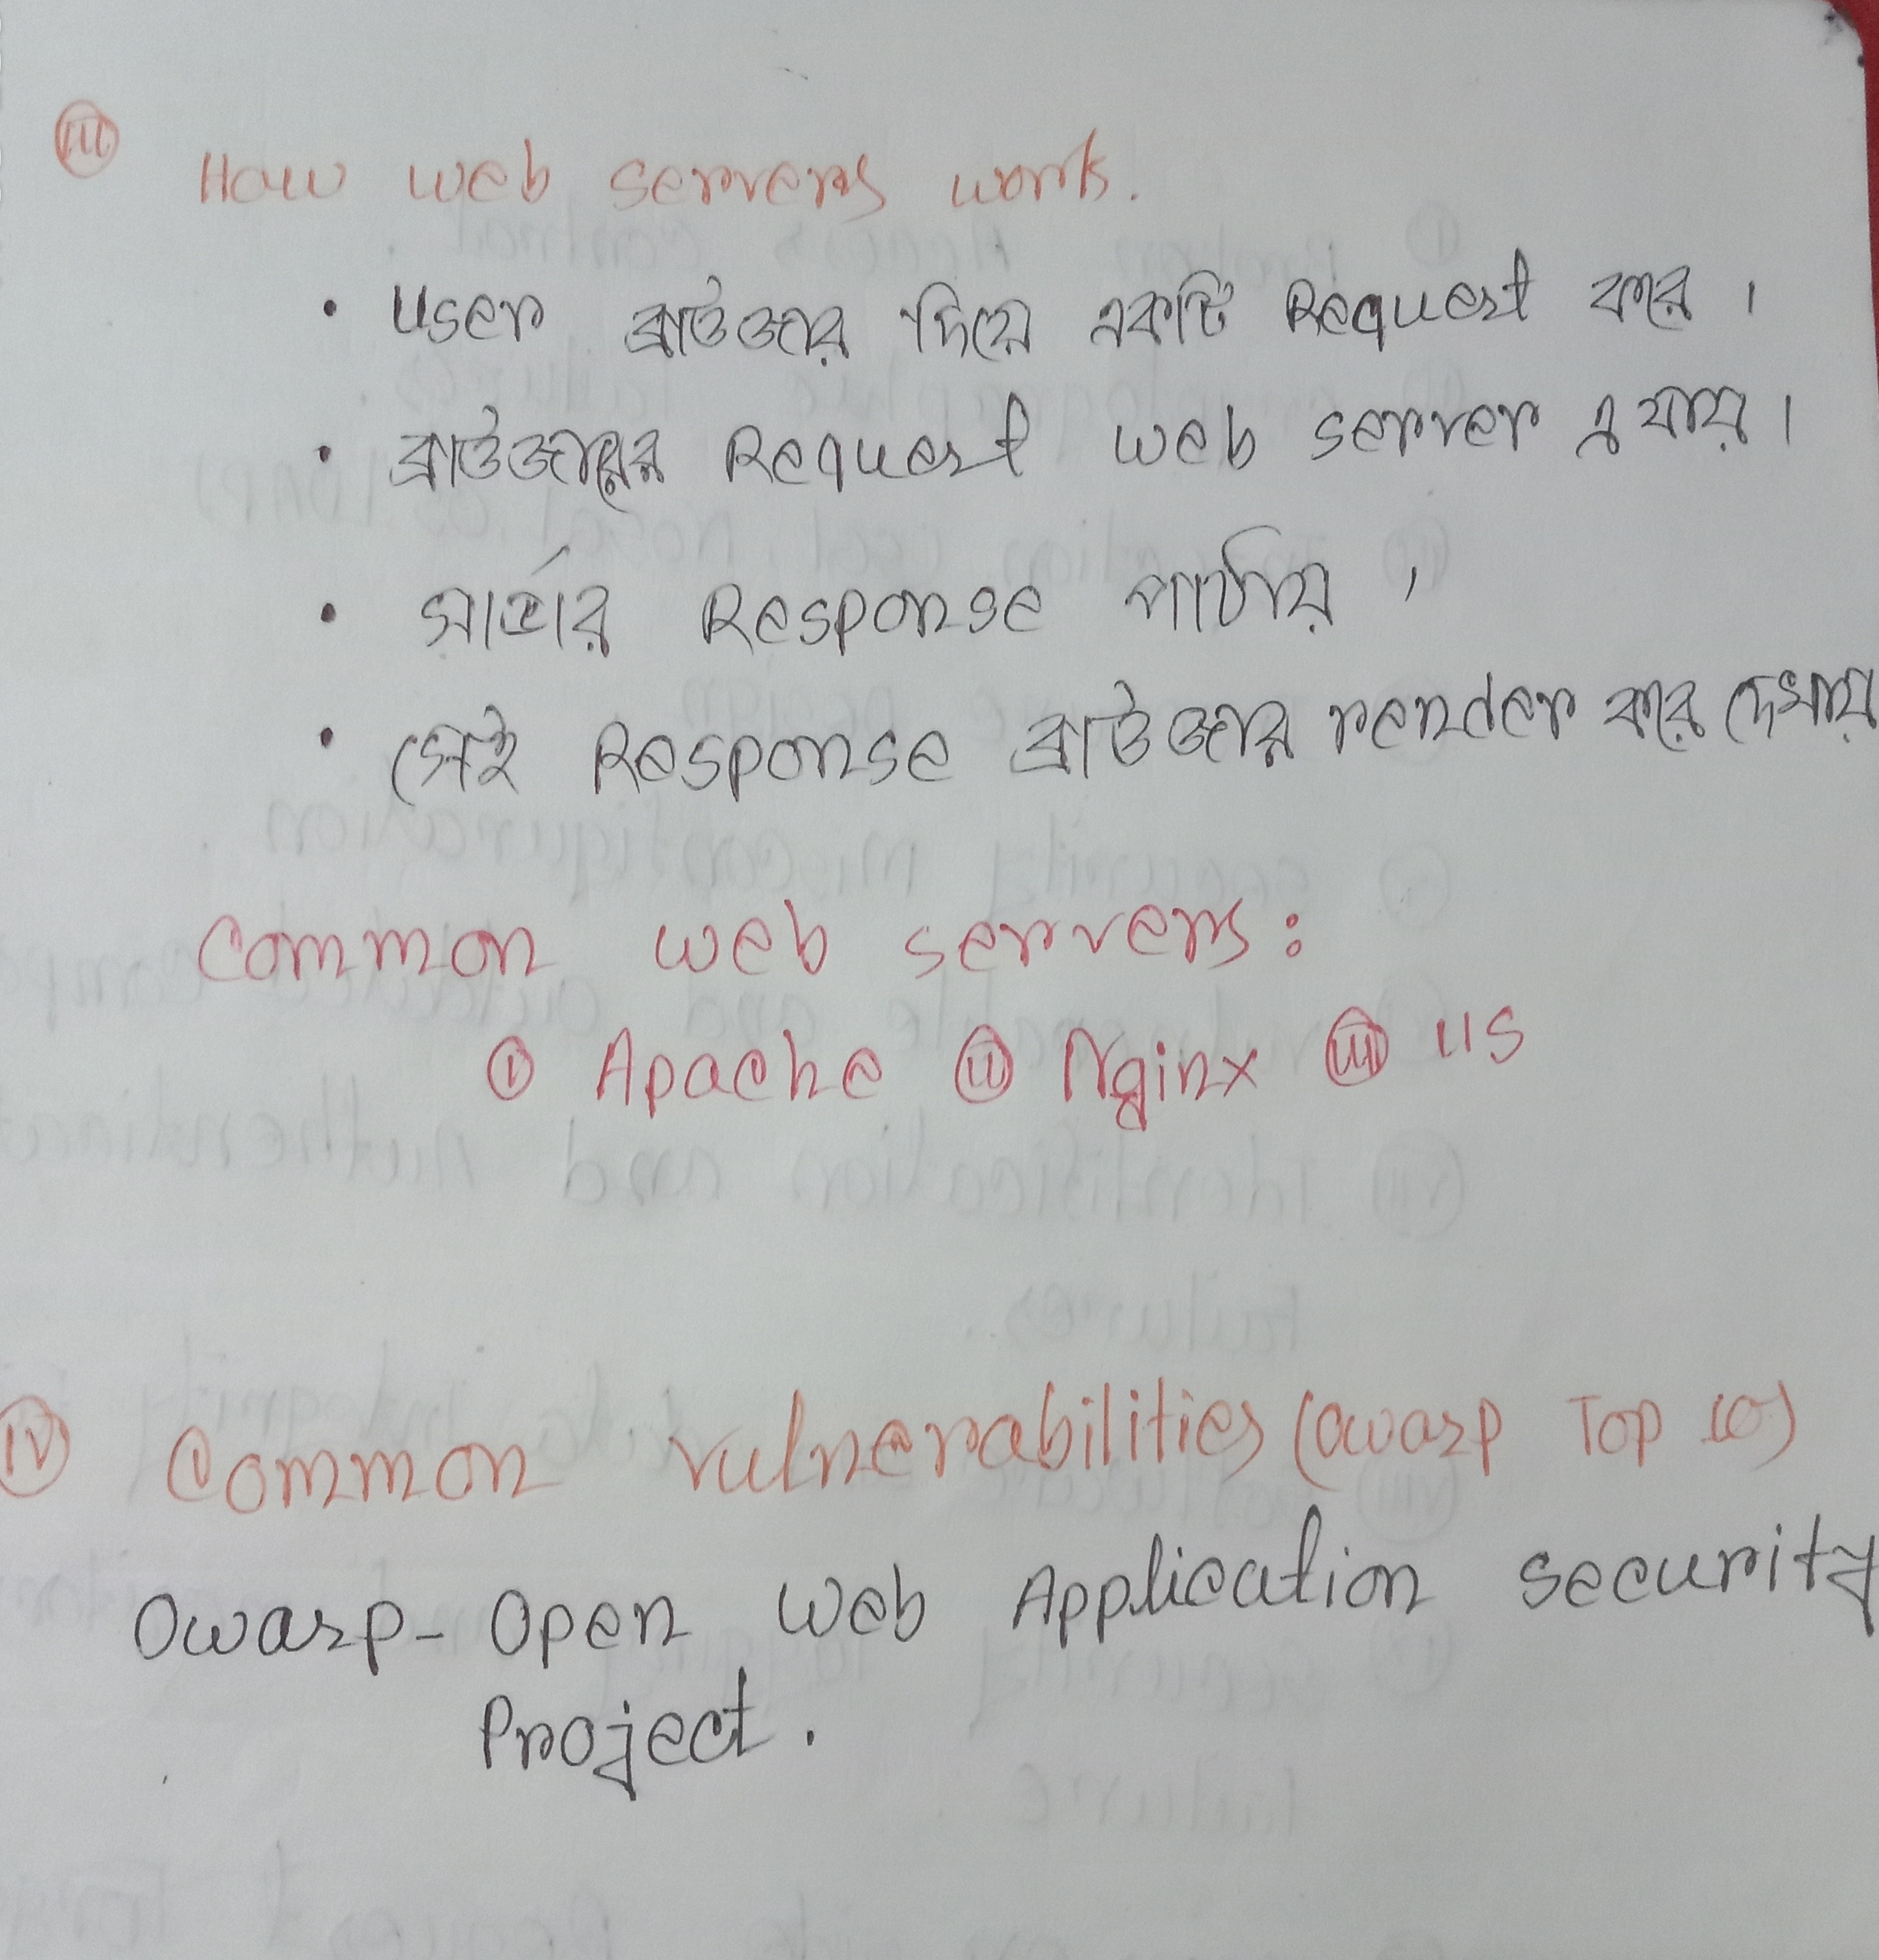 (iii) How web servers work.
• User ব্রাউজার দিয়ে একটি Request করে।
• ব্রাউজারের Request web server এ যায়।
• সার্ভার Response পাঠায়।
• সেই Response ব্রাউজার render করে দেখায়
Common web servers:
(i) Apache (ii) Nginx (iii) IIS
(iv) Common vulnerabilities (Owasp Top 10)
Owasp- Open Web Application Security
Project.